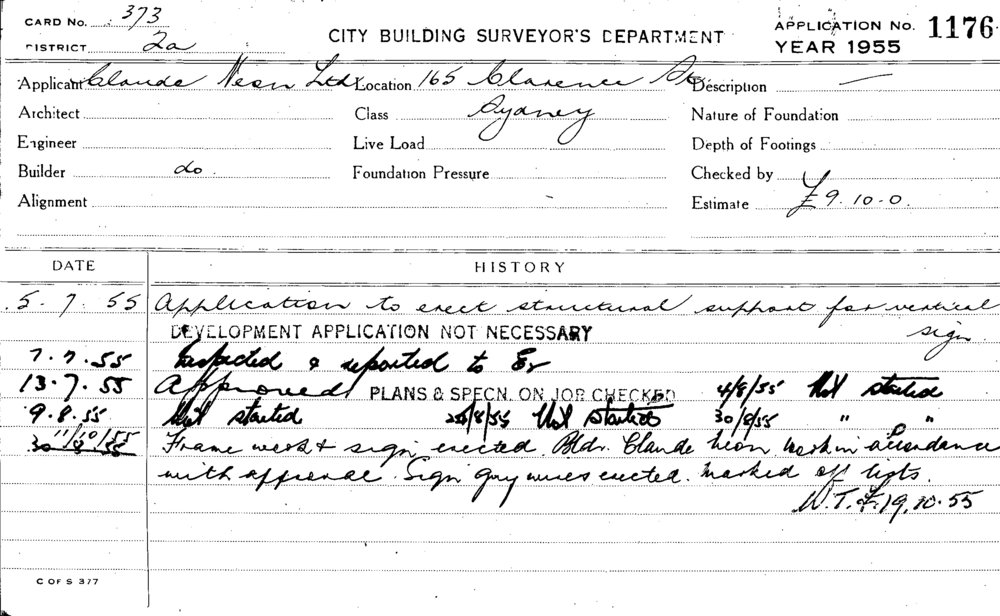 CARD No. 373
DISTRICT 2a
CITY BUILDING SURVEYOR'S DEPARTMENT
APPLICATION No. 1176
YEAR 1955
Applicant Claude Neon Ltd Location 165 Clarence St Description —
Architect Class Sydney Nature of Foundation
Engineer Live Load Depth of Footings
Builder do. Foundation Pressure Checked by
Alignment Estimate £9.10.0
DATE HISTORY
5.7.55 Application to erect structural support for vertical
sign
DEVELOPMENT APPLICATION NOT NECESSARY
7.7.55 Inspected & reported to
13.7.55 Approved PLANS & SPECN. ON JOB CHECKED 4/8/55 Not started
9.8.55 Not started /8/55 Not started 30/8/55 " "
11/10/55 Frame work & sign erected. Bldr. Claude Neon Work in accordance
with approval. Sign guy wires erected. Marked off
W.T. 19.10.55
C OF S 377